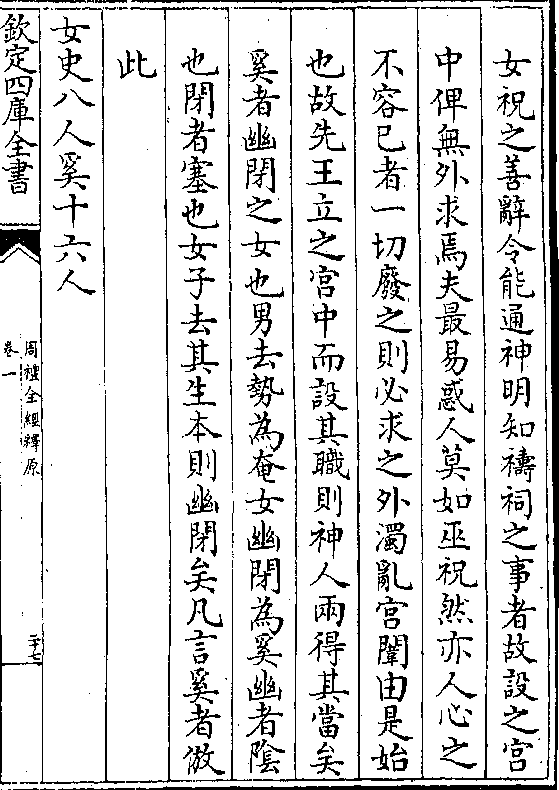 女祝之善辭令能通神明知禱祠之事者故設之宫
中俾無外求焉夫最易惑人莫如巫祝然亦人心之
不容已者一切廢之則必求之外濁亂宫闈由是始
也故先王立之宫中而設其職則神人兩得其當矣
奚者幽閉之女也男去勢為奄女幽閉為奚幽者陰
也閉者塞也女子去其生本則幽閉矣凡言奚者倣
此
女史八人奚十六人
欽定四庫全書
周禮全經釋原
卷一
二十七